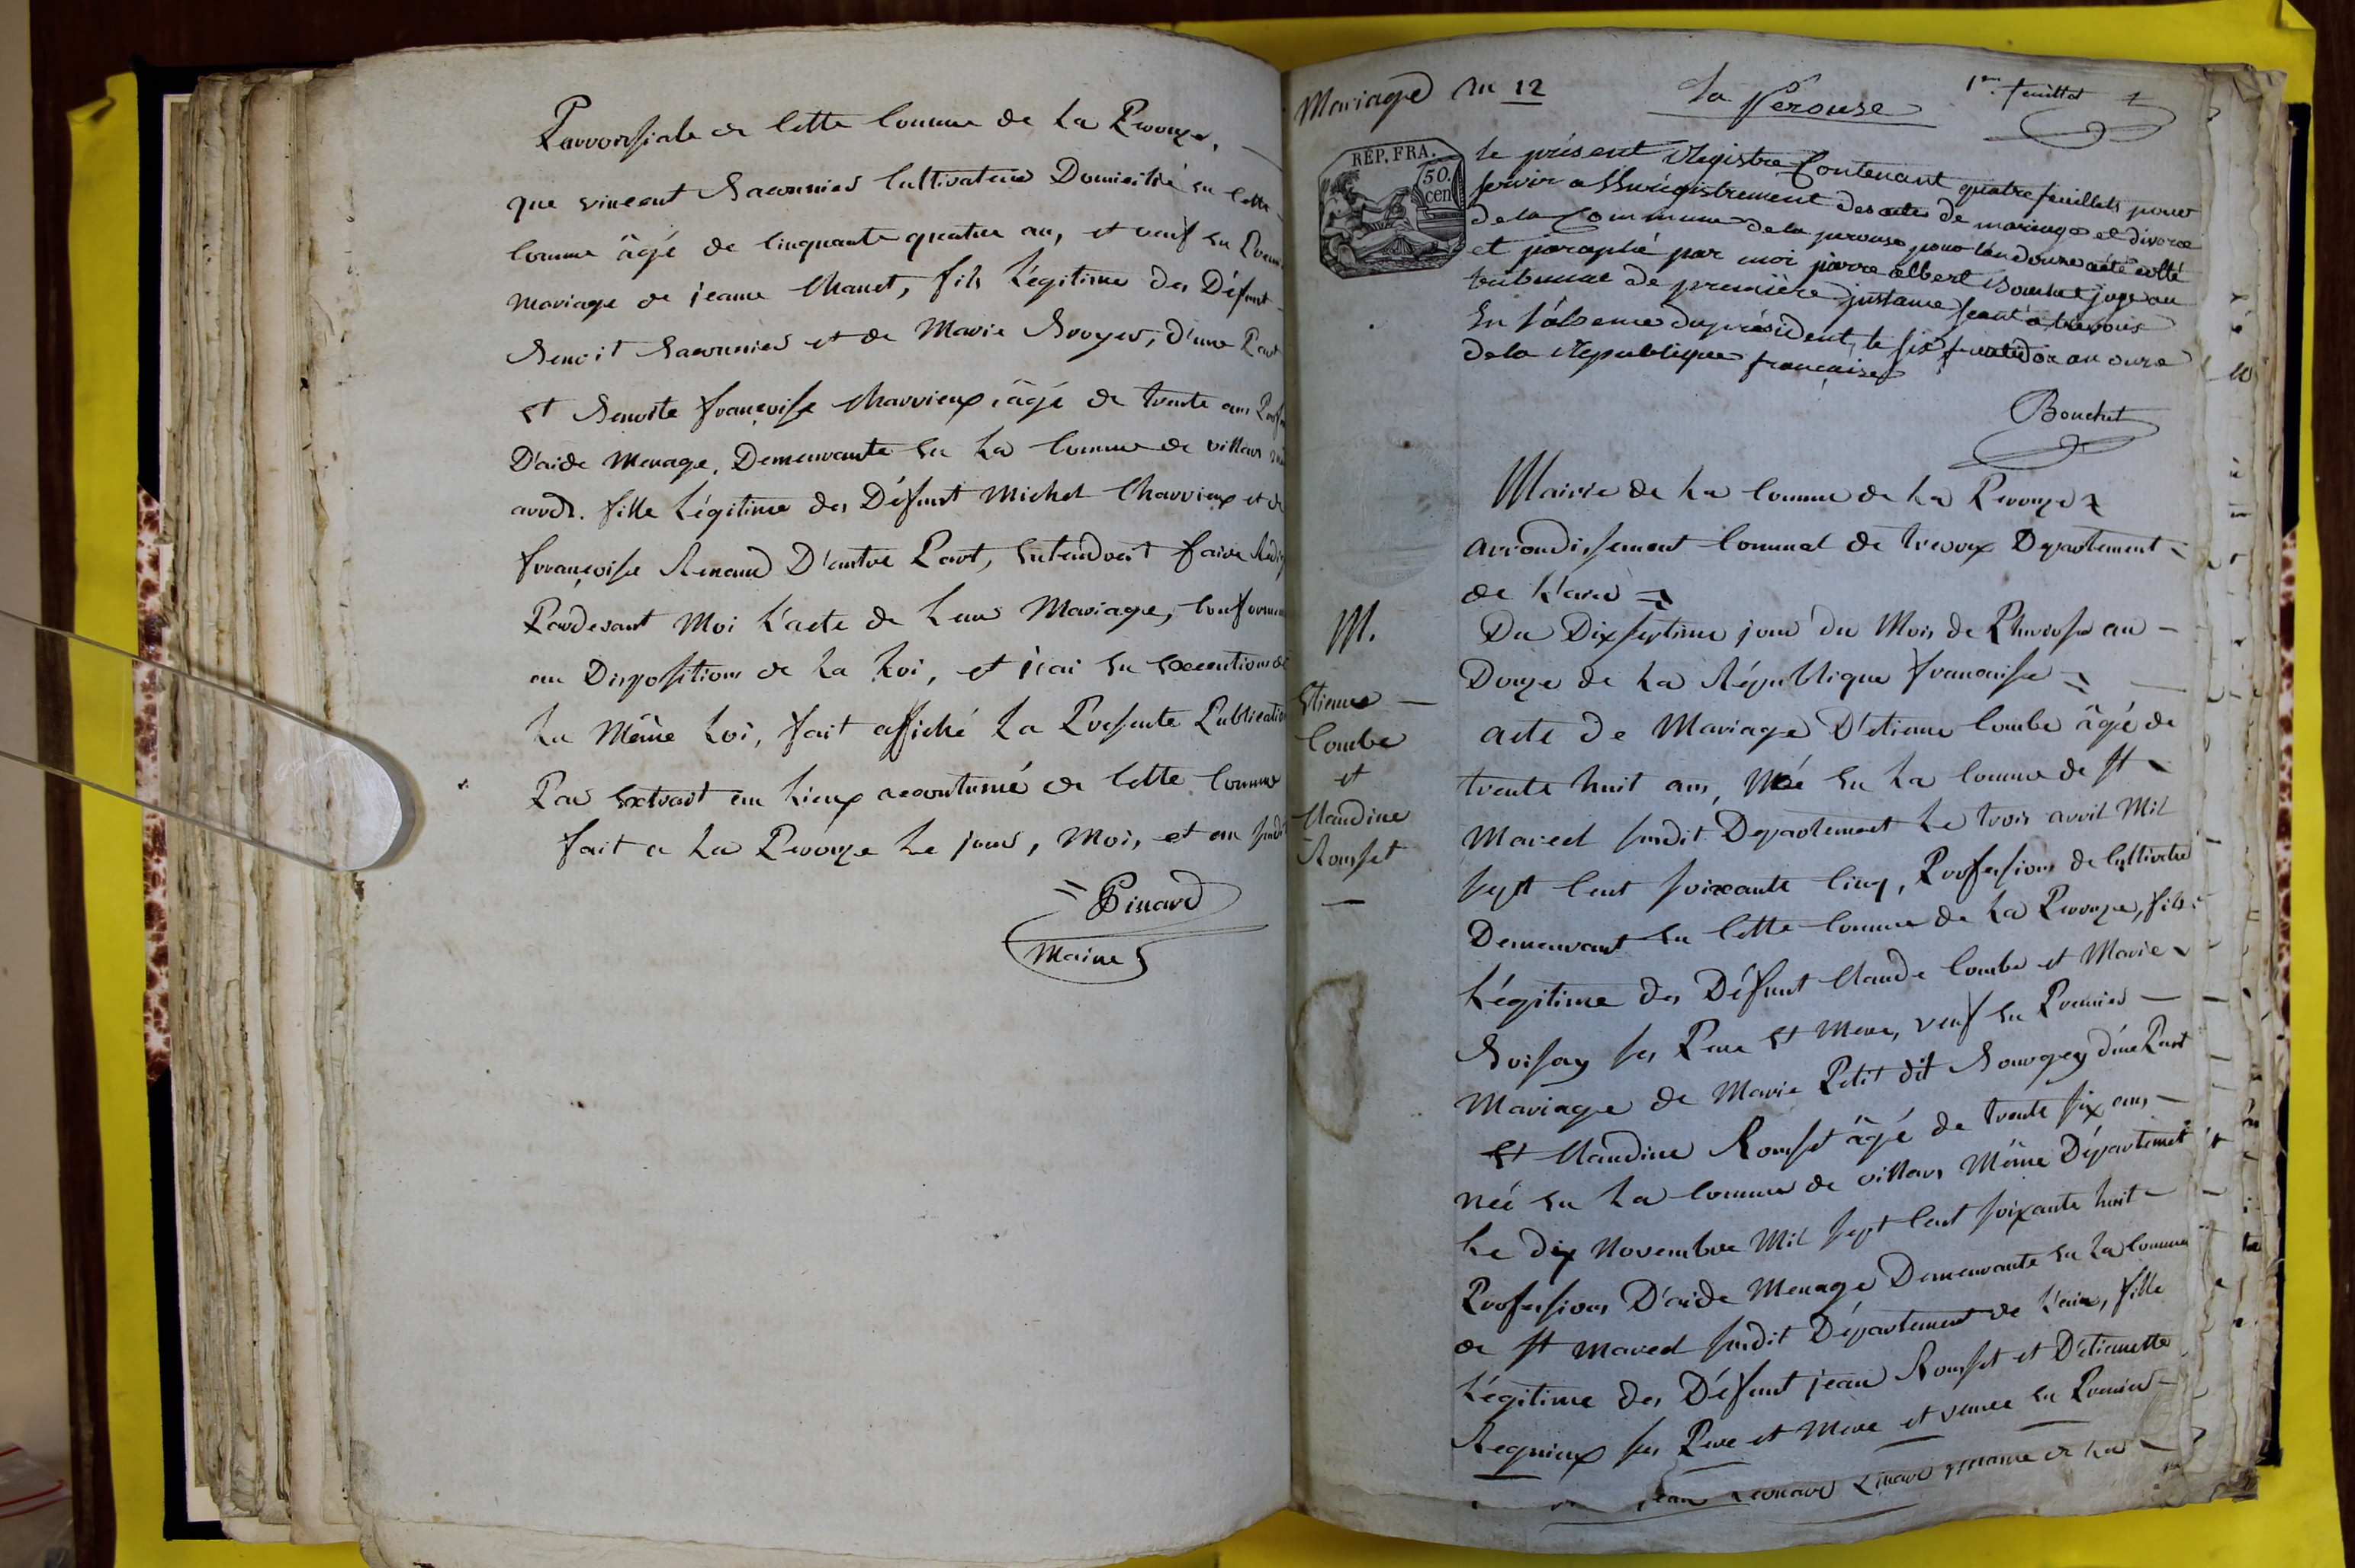 Parroissiale de Cette Comune de La Perouze,
que vincent Saconnier Cultivateur Domicilié en Cette
Comune âgé de Cinquante quatre an, et veuf en Premi
mariage de jeanne Chanet, fils Légitime des Défunt
Benoit Saconnier et de Marie Broyer, d'une Part
Et Benoite françoise Charvieux, âgé de trente ans Profe
D'aide Menage, Demeurante En La Comune de villars
arrdt. fille Légitime des Défunt Michel Charvieux et de
françoise Renaud D'autre Part, Entendoit faire Rédi
Pardevant Moi L'acte de Leur Mariage, Conformem
au Disposition de La Loi, et j'cai En Execution de
La Même Loi, fait affiché La Presente Publication
Par Extrait au Lieux accoutumé de Cette Comune
fait a La Perouze Le jour, Moi, et an susdit
Pinard
Maire
Mariage an 12
La Perouse
1er feuillet
RÉP. FRA.
50. cen
le présent Registre Contenant quatre feuillets pour
servir a l'Enrégistrement des actes de mariage et divorce
de la Commune de la perouse pour l'an douze a été cotté
et paraphé par moi pierre albert Bouchet juge au
tribunal de première instance séant a trevoux
En l'absence du président, le six fructidor an onze
de la République française
Bouchet
Mairie de La Comune de La Perouze
arrondissement Comunal de trevoux Departement
de L'ain
M.
Du Dix septime jour du Mois de Pluviose an
Douze de La République francaise
Etienne
Combe
et
Claudine
Rousset
acte De Mariage D'etienne Combe âgé de
trente huit ans, Né En La Comune de St
Marcel susdit Departement Le trois avril Mil
sept Cent soixante Cinq, Profession de Cultivateu
Demeurant En Cette Comune de La Perouze, fils
Légitime des Défunt Claude Combe et Marie
Boissay ses Pere Et Mere, veuf En Premier
Mariage de Marie Petit dit Bourgey d'une Part
Et Claudine Rousset âgé de trente six ans
née En La Comune de villars Même Département
Le dix Novembre Mil sept Cent soixante huit
Profession D'aide Menage Demeurante En La Comune
de St Marcel susdit Département de L'ain, fille
Légitime des Défunt jean Rousset et D'etiennette
Regnieux ses Pere et Mere et veuve En Premier
jean Leonard Pinard Maire de La